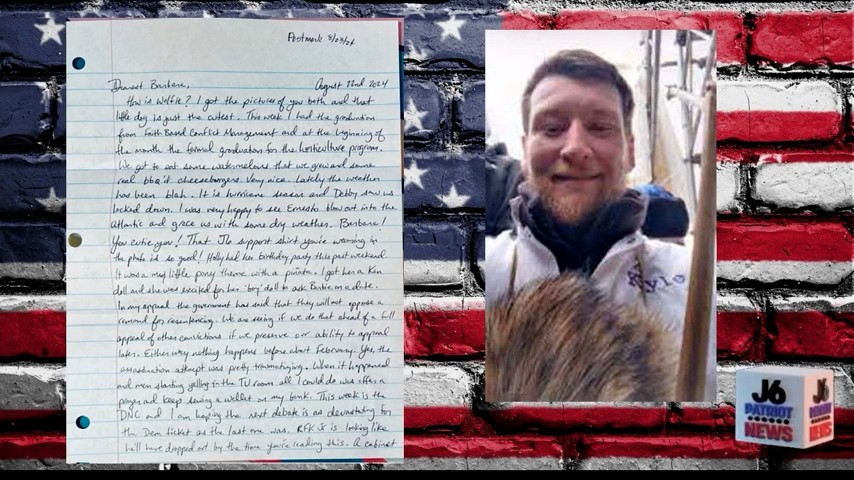 Postmark 8/23/24
Dearest Barbara, August 22nd 2024
How is Wolfie? I got the pictures of you both and that
little dog is just the cutest. This week I had the graduation
from Faith Based Conflict Management and at the beginning of
the month the formal graduation for the horticulture program.
We got to eat some watermelons that we grew and some
real bbq'd cheeseburgers. Very nice. Lately the weather
has been blah. It is hurricane season and Debby saw us
locked down. I was very happy to see Ernesto blow out into the
atlantic and grace us with some dry weather. Barbara!
You cutie you! That J6 support shirt you're wearing in
the photo is so good! Holly had her birthday party this past weekend.
It was a my little pony theme with a pinata. I got her a Ken
doll and she was excited for her "boy" doll to ask Barbie on a date.
In my appeal the government has said that they will not oppose a
remand for resentencing. We are seeing if we do that ahead of a full
appeal of other convictions if we preserve our ability to appeal
later. Either way nothing happens before about February. Yes, the
assassination attempt was pretty traumatizing. When it happened
and men starting yelling in the TV room all I could do was offer a
prayer and keep sewing a wallet on my bunk. This week is the
DNC and I am hoping the next debate is as devastating for
the Dem ticket as the last one was. RFK Jr is looking like
he'll have dropped out by the time you're reading this. A cabinet
Kyle
J6
PATRIOT
NEWS
J6
PATRIOT
NEWS